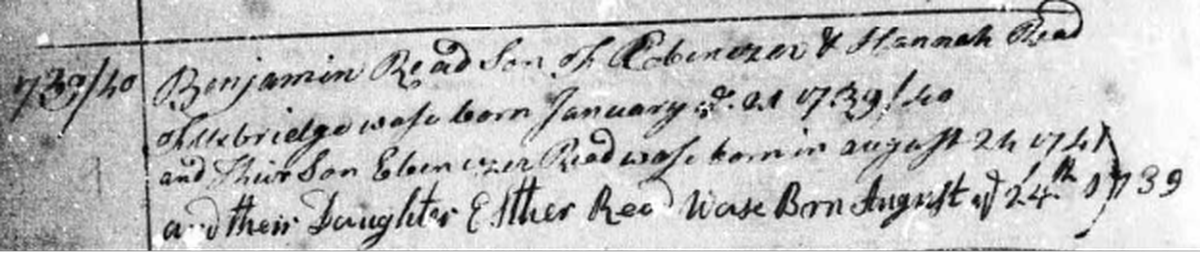 1739/40 Benjamin Read Son of Ebenezer & Hannah Read
of Uxbridge wase born January ye 21 1739/40
and Their Son Ebenezer Read wase born in august 24 1741
and their Daughter Esther Read Wase Born August ye 24th 1739